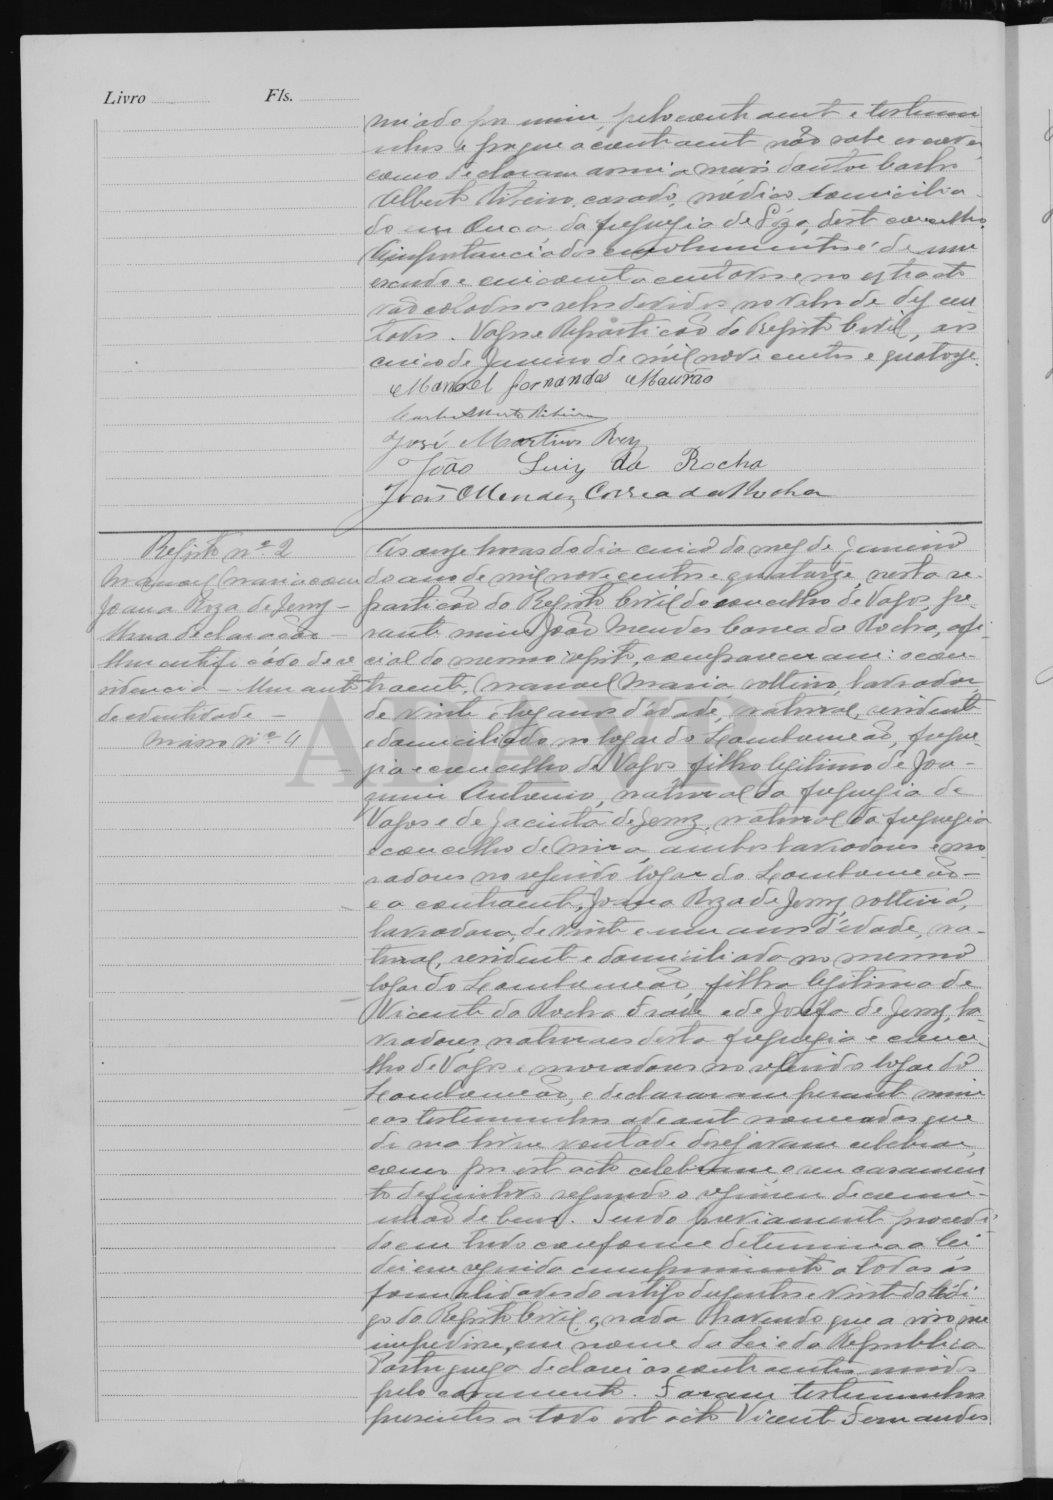 Livro Fls.
nciado por mim, pelo contraente e testemu
nhas e porque a contraente não sabe escrever
como declaram assina mais doutor Carlos
Alberto Ribeiro, casado, médico domicilia
do em Ouca, da freguesia de Sóza, dest concelho.
A importancia dos emolumentos é de um
escudo e cincoenta centavos e no extracto
vão colados os selos devidos no valor de dez cen
tavos. Vagos e Repartição do Registo Civil, aos
cinco de Janeiro de mil nove centos e quatorze.
Manoel fernandes Mourão
Carlos Alberto Ribeiro
José Martins
João Luiz da Rocha
João Mendes Correa da Rocha
Registo nº 2
Manoel Maria com
Joana Roza de Jesus –
Uma declaração –
Um certificado de re
sidencia – Um auto
de identidade –
Masso nº 4
Ás onze horas do dia cinco do mez de Janeiro
do ano de mil nove centos e quatorze, nesta re-
partição do Registo Civil do concelho de Vagos, pe-
rante mim João Mendes Correa da Rocha, ofi-
cial do mesmo registo, compareceram: o con-
traente, Manoel Maria, solteiro, lavrador,
de vinte e trez anos d'édade, natural, residente
e domiciliado no logar do Lombomeão, fregue-
zia e concelho de Vagos filho legitimo de Joa-
quim Antonio, natural da freguezia de
Vagos e de Jacinta de Jesus, natural da freguezia
e concelho de Mira, ambos lavradores e mo
radores no referido logar do Lombomeão –
e a contraente, Joana Roza de Jesus, solteira,
lavradora, de vinte e um anos d'édade, na-
tural, residente e domiciliada no mesmo
logar do Lombomeão, filha legitima de
Vicente da Rocha Frade e de Josefa de Jesus, la-
vradores, naturaes desta freguezia e conce-
lho de Vagos e moradores no referido logar do
Lombomeão, e declararam perante mim
e as testemunhas adeante nomeadas que
de sua livre vontade desejavam celebrar,
como por est acto celebram, o seu casamen
to definitivo segundo o regimen de comu-
nhão de bens. Tendo previamente procedi
do em tudo conforme determina a lei
dei em seguida cumprimento a todas as
formalidades do artigo duzentos e vinte do Códi
go do Registo Civil, e nada havendo que a isso me
impedisse, em nome da Lei e da Republica
Portugueza declarei os contraentes unidos
pelo casamento. Foram testemunhas
presentes a todo est acto Vicente Fernandes
ADAVR